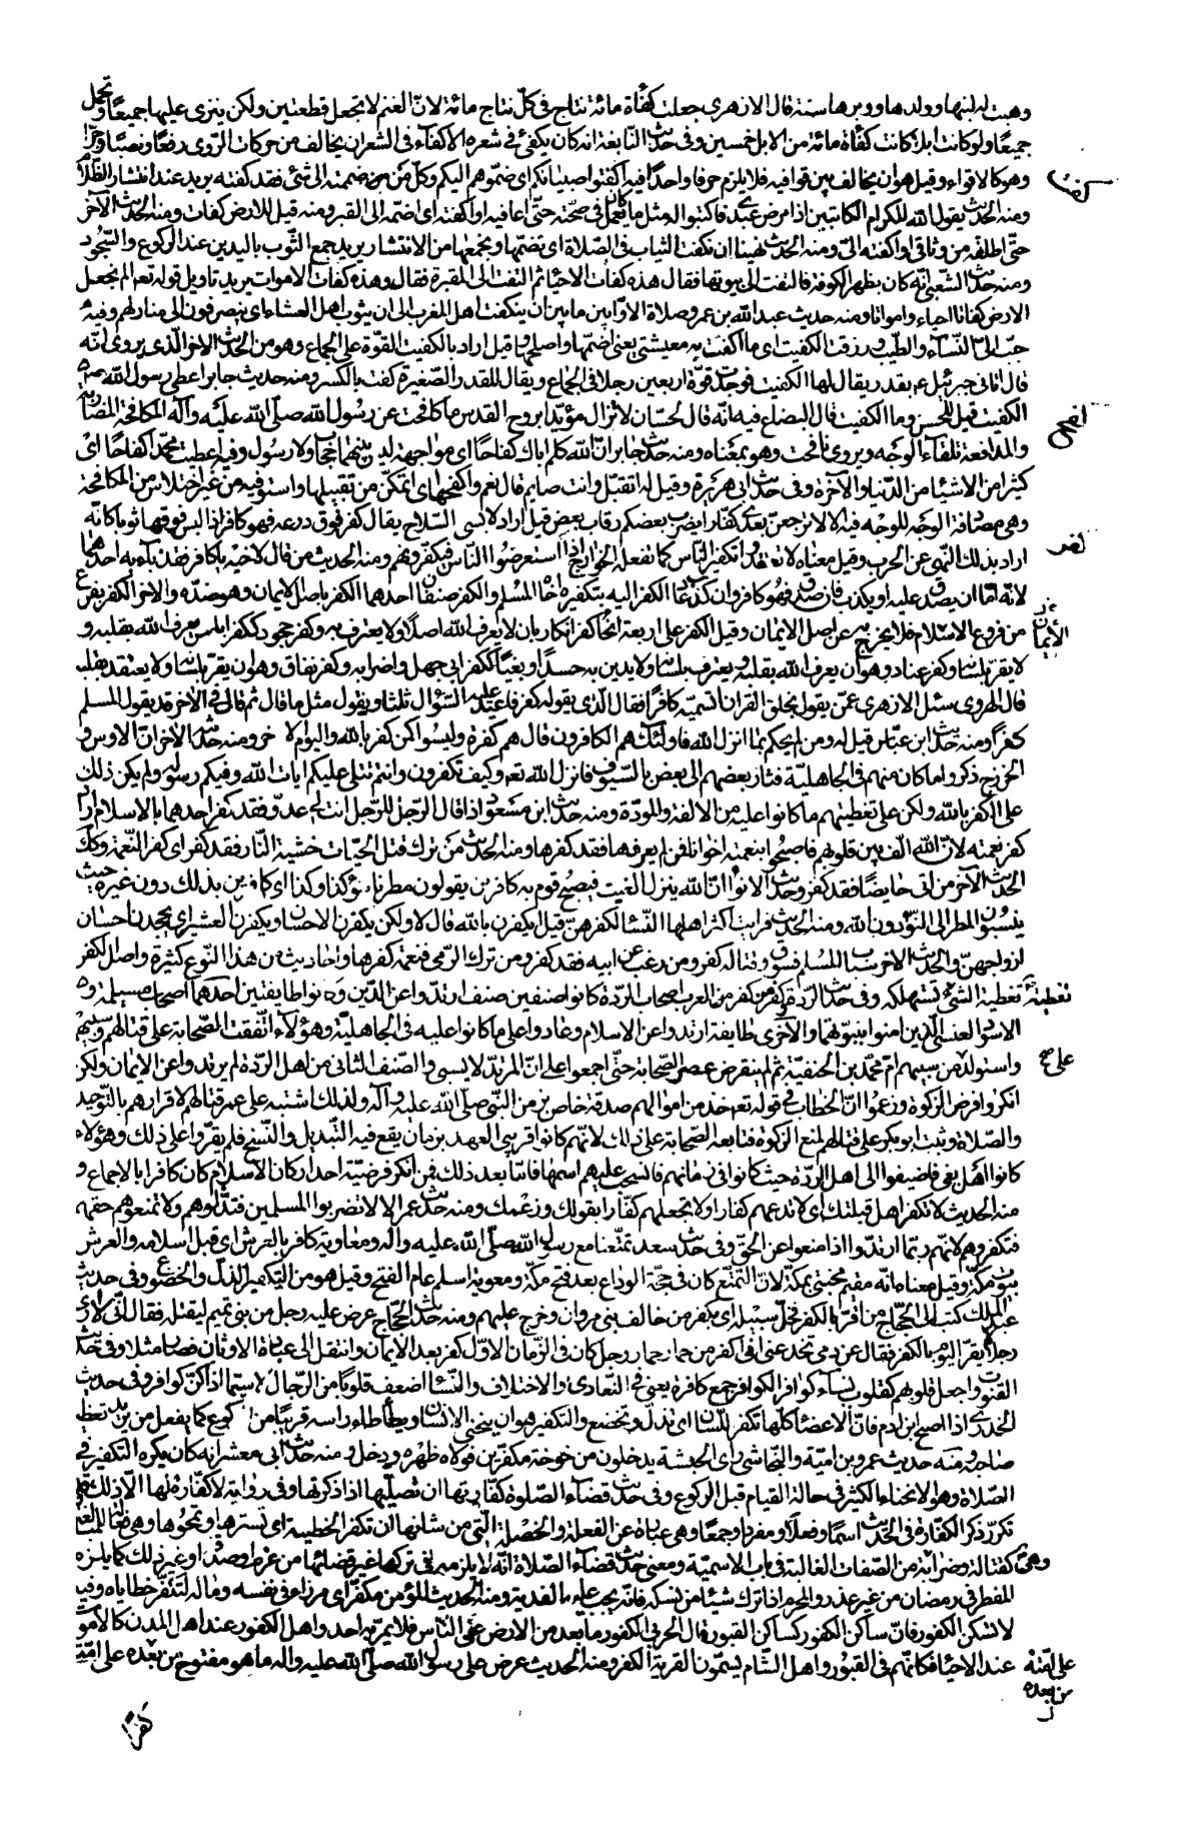 وهبت له لبنها وولدها ووبرها سنة قال الازهري جعلت كفأة مائة نتاج في كل نتاج مائة لان الغنم لا تجعل قطعتين ولكن ينزى عليها جميعا وتحمل
جميعا ولو كانت ابلا كانت كفأة مائة من الابل خمسين وفي حديث النابغة انه كان يكفئ في شعره الاكفاء في الشعر ان يخالف من حركات الروي رفعا ونصبا وجرا
وهو كالاقواء وقيل هو ان يخالف بين قوافيه فلا يلزم حرفا واحدا فيه اكفتوا صبيانكم اي ضموهم اليكم وكل من ضممته الى شئ فقد كفته يريد عند انتشار الظلام
كفت
ومنه الحديث يقول الله للكرام الكاتبين اذا مرض عبدي فاكتبوا له مثل ما كان يعمل في صحته حتى اعافيه او اكفته اي اضمه الى القبر ومنه قيل للارض كفات ومنه الحديث الآخر
حتى اطلقه من وثاقي او اكفته الي ومنه الحديث نهينا ان نكفت الثياب في الصلاة اي نضمها ونجمعها من الانتشار يريد جمع الثوب باليدين عند الركوع والسجود
ومنه حديث الشعبي انه كان بظهر الكوفة فالتفت الى بيوتها فقال هذه كفات الاحياء ثم التفت الى المقبرة فقال وهذه كفات الاموات يريد تاويل قوله تعم الم نجعل
الارض كفاتا احياء وامواتا ومنه حديث عبد الله بن عمرو صلاة الاوابين ما بين ان ينكفت اهل المغرب الى ان يثوب اهل العشاء اي ينصرفون الى منازلهم وفيه
حبب الي النساء والطيب ورزقت الكفيت اي ما اكفت به معيشتي يعني اضمها واصلحها وقيل اراد بالكفيت القوة على الجماع وهو من الحديث الآخر الذي يروى انه
قال اتاني جبرئيل ع بقدر يقال لها الكفيت فوجدت قوة اربعين رجلا في الجماع ويقال للقدر الصغيرة كفت بالكسر ومنه حديث جابر اعطي رسول الله ص
الكفيت قيل للحسن وما الكفيت قال البضاع فيه انه قال لحسان لا تزال مؤيدا بروح القدس ما كافحت عن رسول الله صلى الله عليه وآله المكافحة المضاربة
والمدافعة تلقاء الوجه ويروى نافحت وهو بمعناه ومنه حديث جابر ان الله كلم اباك كفاحا اي مواجهة ليس بينهما حجاب ولا رسول وفيه اعطيت محمدا كفاحا اي
كثيرا من الاشياء من الدنيا والآخرة وفي حديث ابي هريرة وقيل له اتقبل وانت صايم قال نعم واكفحها اي اتمكن من تقبيلها واستوفيه من غير اختلاس من المكافحة
وهي مصادفة الوجه للوجه فيه الا لا ترجعن بعدي كفارا يضرب بعضكم رقاب بعض قيل اراد لابسي السلاح يقال كفر فوق درعه فهو كافر اذا لبس فوقها ثوبا كانه
كفر
اراد بذلك النهي عن الحرب وقيل معناه لا تعتقدوا تكفير الناس كما تفعله الخوارج اذا استعرضوا الناس فيكفرونهم ومنه الحديث من قال لاخيه يا كافر فقد باء به احدهما
لانه اما ان يصدق عليه او يكذب فان صدق فهو كافر وان كذب عاد الكفر اليه بتكفيره اخاه المسلم والكفر صنفان احدهما الكفر باصل الايمان وهو ضده والاخر الكفر بفرع
من فروع الاسلام فلا يخرج به عن اصل الايمان وقيل الكفر على اربعة انحاء كفر انكار بان لا يعرف الله اصلا ولا يعترف به وكفر جحود ككفر ابليس يعرف الله بقلبه و
لا يقر بلسانه وكفر عناد وهو ان يعرف الله بقلبه ويعترف بلسانه ولا يدين به حسدا وبغيا ككفر ابي جهل واضرابه وكفر نفاق وهو ان يقر بلسانه ولا يعتقد بقلبه
قال الهروي سئل الازهري عمن يقول بخلق القران اتسميه كافرا فقال الذي يقوله كفر فاعيد عليه السؤال ثلثا ويقول مثل ما قال ثم قال في الآخر قد يقول المسلم
كفرا ومنه حديث ابن عباس قيل له ومن لم يحكم بما انزل الله فاولئك هم الكافرون قال هم كفرة وليسوا كمن كفر بالله واليوم الآخر ومنه حديثه الآخر ان الاوس و
الخزرج ذكروا ما كان منهم في الجاهلية فثار بعضهم الى بعض بالسيوف فانزل الله تعم وكيف تكفرون وانتم تتلى عليكم ايات الله وفيكم رسوله ولم يكن ذلك
على الكفر بالله ولكن على تغطيتهم ما كانوا عليه من الالفة والمودة ومنه حديث ابن مسعود اذا قال الرجل للرجل انت لي عدو فقد كفر احدهما بالاسلام اراد
كفر نعمته لان الله الف بين قلوبهم فاصبحوا بنعمته اخوانا فمن لم يعرفها فقد كفرها ومنه الحديث من ترك قتل الحيات خشية النار فقد كفر اي كفر النعمة وكذلك
الحديث الآخر من اتى حايضا فقد كفر وحديث الانواء ان الله ينزل الغيث فيصبح قوم به كافرين يقولون مطرنا بنوء كذا وكذا اي كافرين بذلك دون غيره حيث
ينسبون المطر الى النوء دون الله ومنه الحديث فرايت اكثر اهلها النساء لكفرهن قيل ايكفرن بالله قال لا ولكن يكفرن الاحسان ويكفرن العشير اي يجحدن احسان
ازواجهن والحديث الاخر سباب المسلم فسوق وقتاله كفر ومن رغب عن ابيه فقد كفر ومن ترك الرمي فنعمة كفرها واحاديث من هذا النوع كثيرة واصل الكفر
تغطية الشئ تستهلكه وفي حديث الردة وكفر من كفر من العرب اصحاب الردة كانوا صنفين صنف ارتدوا عن الدين وكانوا طايفتين احدهما اصحاب مسيلمة و
الاسود العنسي الذين امنوا بنبوتهما والآخرى طايفة ارتدوا عن الاسلام وعادوا على ما كانوا عليه في الجاهلية وهؤلاء اتفقت الصحابة على قتالهم وسبيهم
واستولد علي ع من سبيهم ام محمد بن الحنفية ثم لم ينقرض عصر الصحابة حتى اجمعوا على ان المرتد لا يسبى والصنف الثاني من اهل الردة لم يرتدوا عن الايمان ولكن
انكروا فرض الزكوة وزعموا ان الخطاب في قوله تعم خذ من اموالهم صدقة خاص بزمن النبي صلى الله عليه وآله ولذلك اشتبه على عمر قتالهم لاقرارهم بالتوحيد
والصلاة وثبت ابو بكر على قتالهم لمنع الزكوة فتابعه الصحابة على ذلك لانهم كانوا قريبي العهد بزمان يقع فيه التبديل والنسخ فلم يقروا على ذلك وهؤلاء
كانوا اهل بغي فاضيفوا الى اهل الردة حيث كانوا في زمانهم فانسحب عليهم اسمها فاما بعد ذلك فمن انكر فرضية احد اركان الاسلام كان كافرا بالاجماع و
منه الحديث لا تكفر اهل قبلتك اي لا تدعهم كفارا ولا تجعلهم كفارا بقولك وزعمك ومنه حديث عمر الا لا تضربوا المسلمين فتذلوهم ولا تمنعوهم حقهم
فتكفروهم لانهم ربما ارتدوا اذا منعوا عن الحق وفي حديث سعد تمتعنا مع رسول الله صلى الله عليه واله ومعاوية كافر بالعرش اي قبل اسلامه والعرش
بيوت مكة وقيل معناه انه مقيم مختبئ بمكة لان التمتع كان في حجة الوداع بعد فتح مكة ومعوية اسلم عام الفتح وقيل هو من التكفير الذل والخضوع وفي حديث
عبد الملك كتب الى الحجاج من اقر بالكفر فخل سبيله اي بكفر من خالف بني مروان وخرج عليهم ومنه حديث الحجاج عرض عليه رجل من بني تميم ليقتله فقال اني لارى
رجلا لا يقر اليوم بالكفر فقال عن دمي تخدعني اني اكفر من حمار حمار رجل كان في الزمان الاول كفر بعد الايمان وانتقل الى عبادة الاوثان فصار مثلا وفي حديث
القنوت واجعل قلوبهم كقلوب نساء كوافر الكوافر جمع كافرة يعني في التعادي والاختلاف والنساء اضعف قلوبا من الرجال لا سيما اذا كن كوافر وفي حديث
الخدري اذا اصبح ابن ادم فان الاعضاء كلها تكفر للسان اي تذل وتخضع والتكفير هو ان ينحني الانسان ويطأطئ راسه قريبا من الركوع كما يفعل من يريد تعظيم
صاحبه ومنه حديث عمرو بن امية والنجاشي راى الحبشة يدخلون من خوخة مكفرين فولاه ظهره ودخل ومنه حديث ابي معشر انه كان يكره التكفير في
الصلاة وهو الانحناء الكثير في حالة القيام قبل الركوع وفي حديث قضاء الصلوة كفارتها ان تصليها اذا ذكرتها وفي رواية لا كفارة لها الا ذلك قد
تكرر ذكر الكفارة في الحديث اسما وفعلا ومفردا وجمعا وهي عبارة عن الفعلة والخصلة التي من شانها ان تكفر الخطيئة اي تسترها وتمحوها وهي فعالة للمبالغة
كقتالة وضرابة وهي من الصفات الغالبة في باب الاسمية ومعنى حديث قضاء الصلاة انه لا يلزمه في تركها غير قضائها من غرم او صدقة او غير ذلك كما يلزم
المفطر في رمضان من غير عذر والمحرم اذا ترك شيئا من نسكه فانه يجب عليه الفدية ومنه الحديث المؤمن مكفر اي مرزأ في نفسه وماله لتكفر خطاياه وفيه
لا تسكن الكفور فان ساكن الكفور كساكن القبور قال الحربي الكفور ما بعد من الارض عن الناس فلا يمر به احد واهل الكفور عند اهل المدن كالاموات
عند الاحياء فكانهم في القبور واهل الشام يسمون القرية الكفر ومنه الحديث عرض على رسول الله صلى الله عليه واله ما هو مفتوح من بعده على امته
على امته
من بعده
كفرا